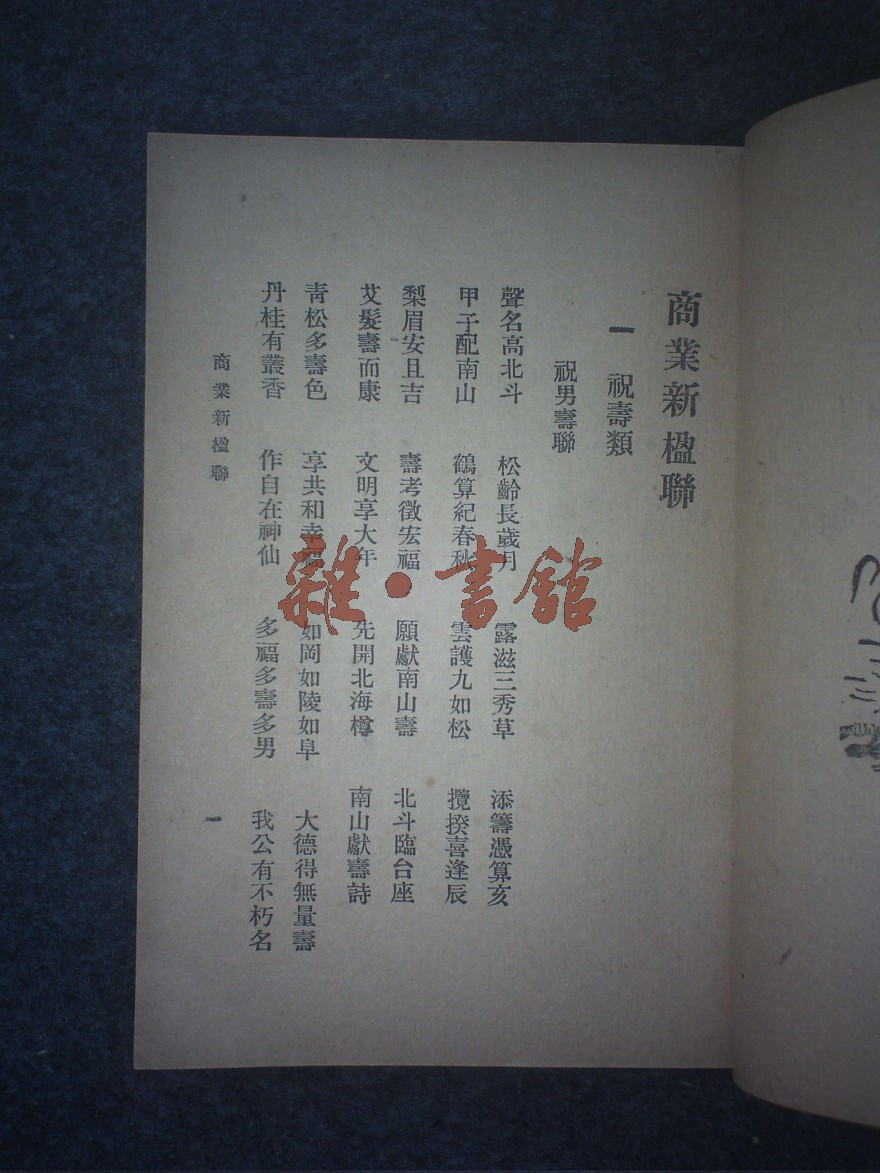 商業新楹聯
一 祝壽類
祝男壽聯
聲名高北斗 松齡長歲月 露滋三秀草 添籌憑算亥
甲子配南山 鶴算紀春秋 雲護九如松 攬揆喜逢辰
梨眉安且吉 壽考徵宏福 願獻南山壽 北斗臨台座
艾髮壽而康 文明享大年 先開北海樽 南山獻壽詩
青松多壽色 享共和幸福 如岡如陵如阜 大德得無量壽
丹桂有叢香 作自在神仙 多福多壽多男 我公有不朽名
商業新楹聯 一
雜·書館